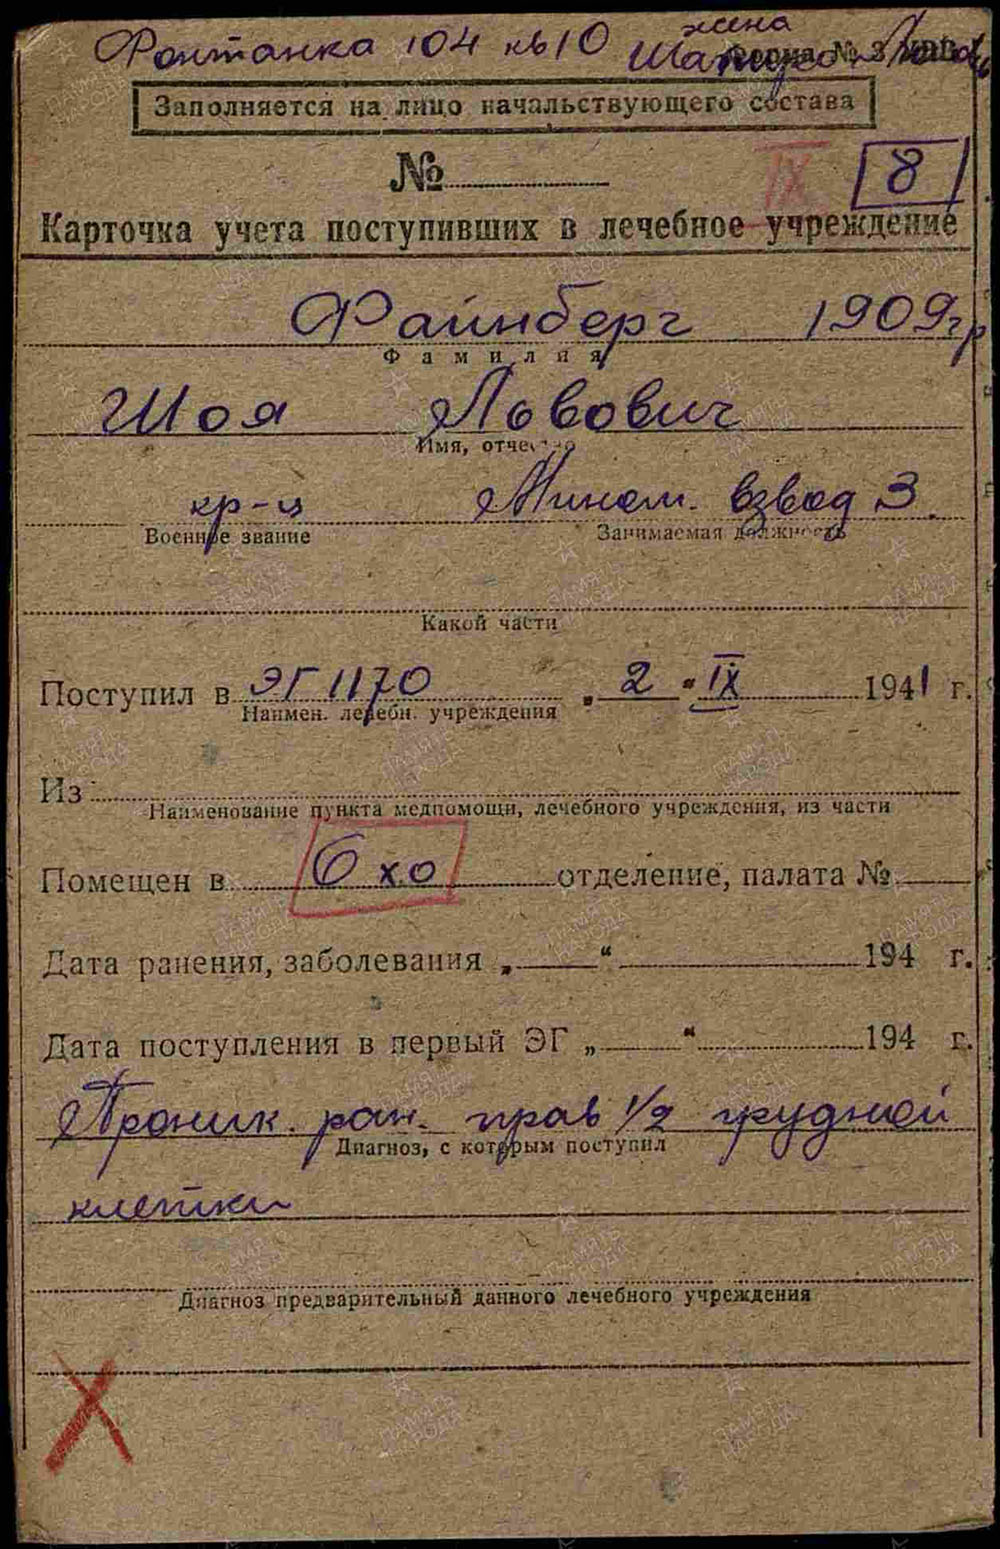 Фонтанка 104 кв 10 жена
Форма № 3
Заполняется на лицо начальствующего состава
№
IX 8
Карточка учета поступивших в лечебное учреждение
Файнберг 1909 гр
Фамилия
Шоя Львович
Имя, отчество
кр-ц Мином. взвод 3.
Военное звание Занимаемая должность
Какой части
Поступил в ЭГ 1170 „ 2 " IX 1941 г.
Наимен. лечебн. учреждения
Из
Наименование пункта медпомощи, лечебного учреждения, из части
Помещен в 6 х о отделение, палата №
Дата ранения, заболевания „ " 194 г.
Дата поступления в первый ЭГ „ " 194 г.
Проник. ран. прав 1/2 грудной
Диагноз, с которым поступил
клетки
Диагноз предварительный данного лечебного учреждения